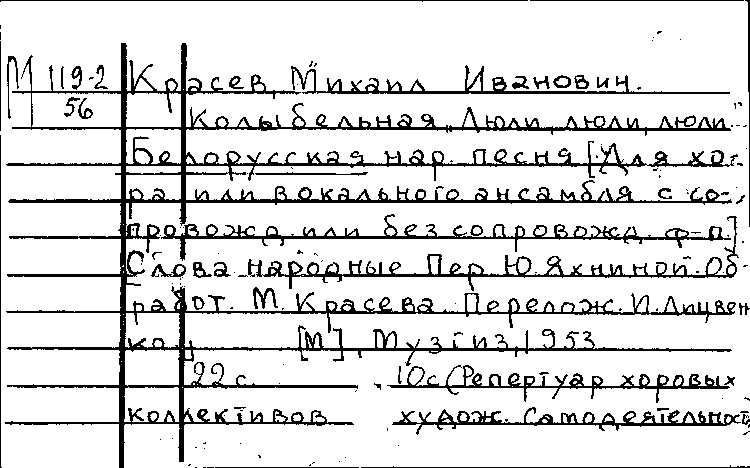 М 119-2 Красев, Михаил Иванович.
56 Колыбельная „Люли, люли, люли"
Белорусская нар. песня [Для хо-
ра или вокального ансамбля с со-
провожд. или без сопровожд. ф-п].
Слова народные Пер. Ю. Яхниной. Об-
работ. М. Красева. Перелож. И. Лицвен
ко, [М], Музгиз, 1953
22 с. 10с (Репертуар хоровых
коллективов худож. самодеятельност